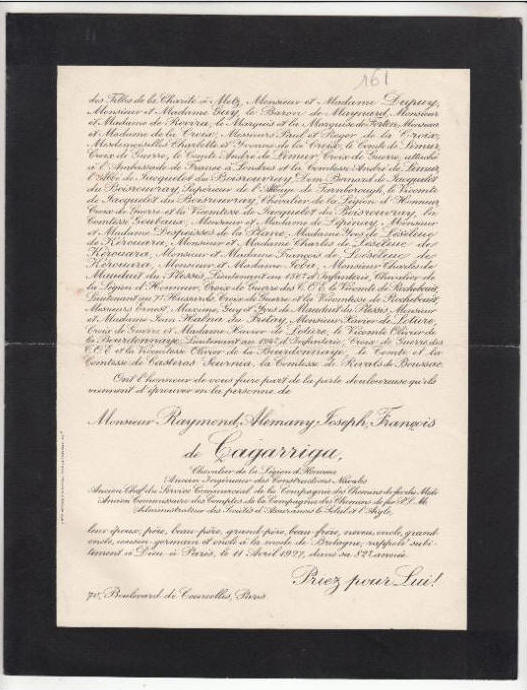 161
des Filles de la Charité à Metz, Monsieur et Madame Dupuy,
Monsieur et Madame Guy, le Baron de Maynard, Monsieur
et Madame de le Marquis et la Marquise de Forton, Monsieur
et Madame de la Croix, Messieurs Paul et Roger de la Croix,
Mesdemoiselles Charlotte et Yvonne de la Croix, le Comte de Limur,
Croix de Guerre, le Comte André de Limur, Croix de Guerre, attaché
à l'Ambassade de France à Londres et la Comtesse André de Limur,
l'Abbé de Jacquelot du Boisrouvray, Dom Bernard de Jacquelot
du Boisrouvray, Supérieur de l'Abbaye de Farnborough, le Vicomte
de Jacquelot du Boisrouvray, Chevalier de la Légion d'Honneur,
Croix de Guerre et la Vicomtesse de Jacquelot du Boisrouvray, la
Comtesse Goubaux, Monsieur et Madame de Lépinay, Monsieur
et Madame Despeisses de la Plane, Madame Yves de Leseleuc
de Kérouara, Monsieur et Madame Charles de Leseleuc de
Kérouara, Monsieur et Madame François de Leseleuc de
Kérouara, Monsieur et Madame Monsieur Charles de
Mauduit du Plessis, Lieutenant au d'Infanterie, Chevalier de
la Légion d'Honneur, Croix de Guerre des T.O.E. le Vicomte de Rochebouët,
Lieutenant au Hussards, Croix de Guerre et la Vicomtesse de Rochebouët,
Messieurs Ernest, Maxime, Guy et Yves de Mauduit du Plessis, Monsieur
et Madame Jean Halna du Fretay, Monsieur Xavier de Loture,
Croix de Guerre et Madame Xavier de Loture, le Vicomte Olivier de
la Bourdonnaye, Lieutenant au d'Infanterie, Croix de Guerre des
T.O.E. et la Vicomtesse Olivier de la Bourdonnaye, le Comte et la
Comtesse de Casteras Sournia, la Comtesse de Rovals de Boussac,
Ont l'honneur de vous faire part de la perte douloureuse qu'ils
viennent d'éprouver en la personne de
Monsieur Raymond, Alemany, Joseph, François
de Çagarriga,
Chevalier de la Légion d'Honneur
Ancien Ingénieur des Constructions Navales
Ancien Chef du Service Commercial de la Compagnie des Chemins de fer du Midi
Ancien Commissaire des Comptes de la Compagnie des Chemins de fer P.L.M.
Administrateur des Sociétés d'Assurances le Soleil et l'Aigle,
leur époux, père, beau-père, grand-père, beau-frère, neveu, oncle, grand-
oncle, cousin-germain et oncle à la mode de Bretagne, rappelé subi-
tement à Dieu à Paris, le 11 Avril 1927, dans sa 82e année.
Priez pour Lui!
70, Boulevard de Courcelles, Paris